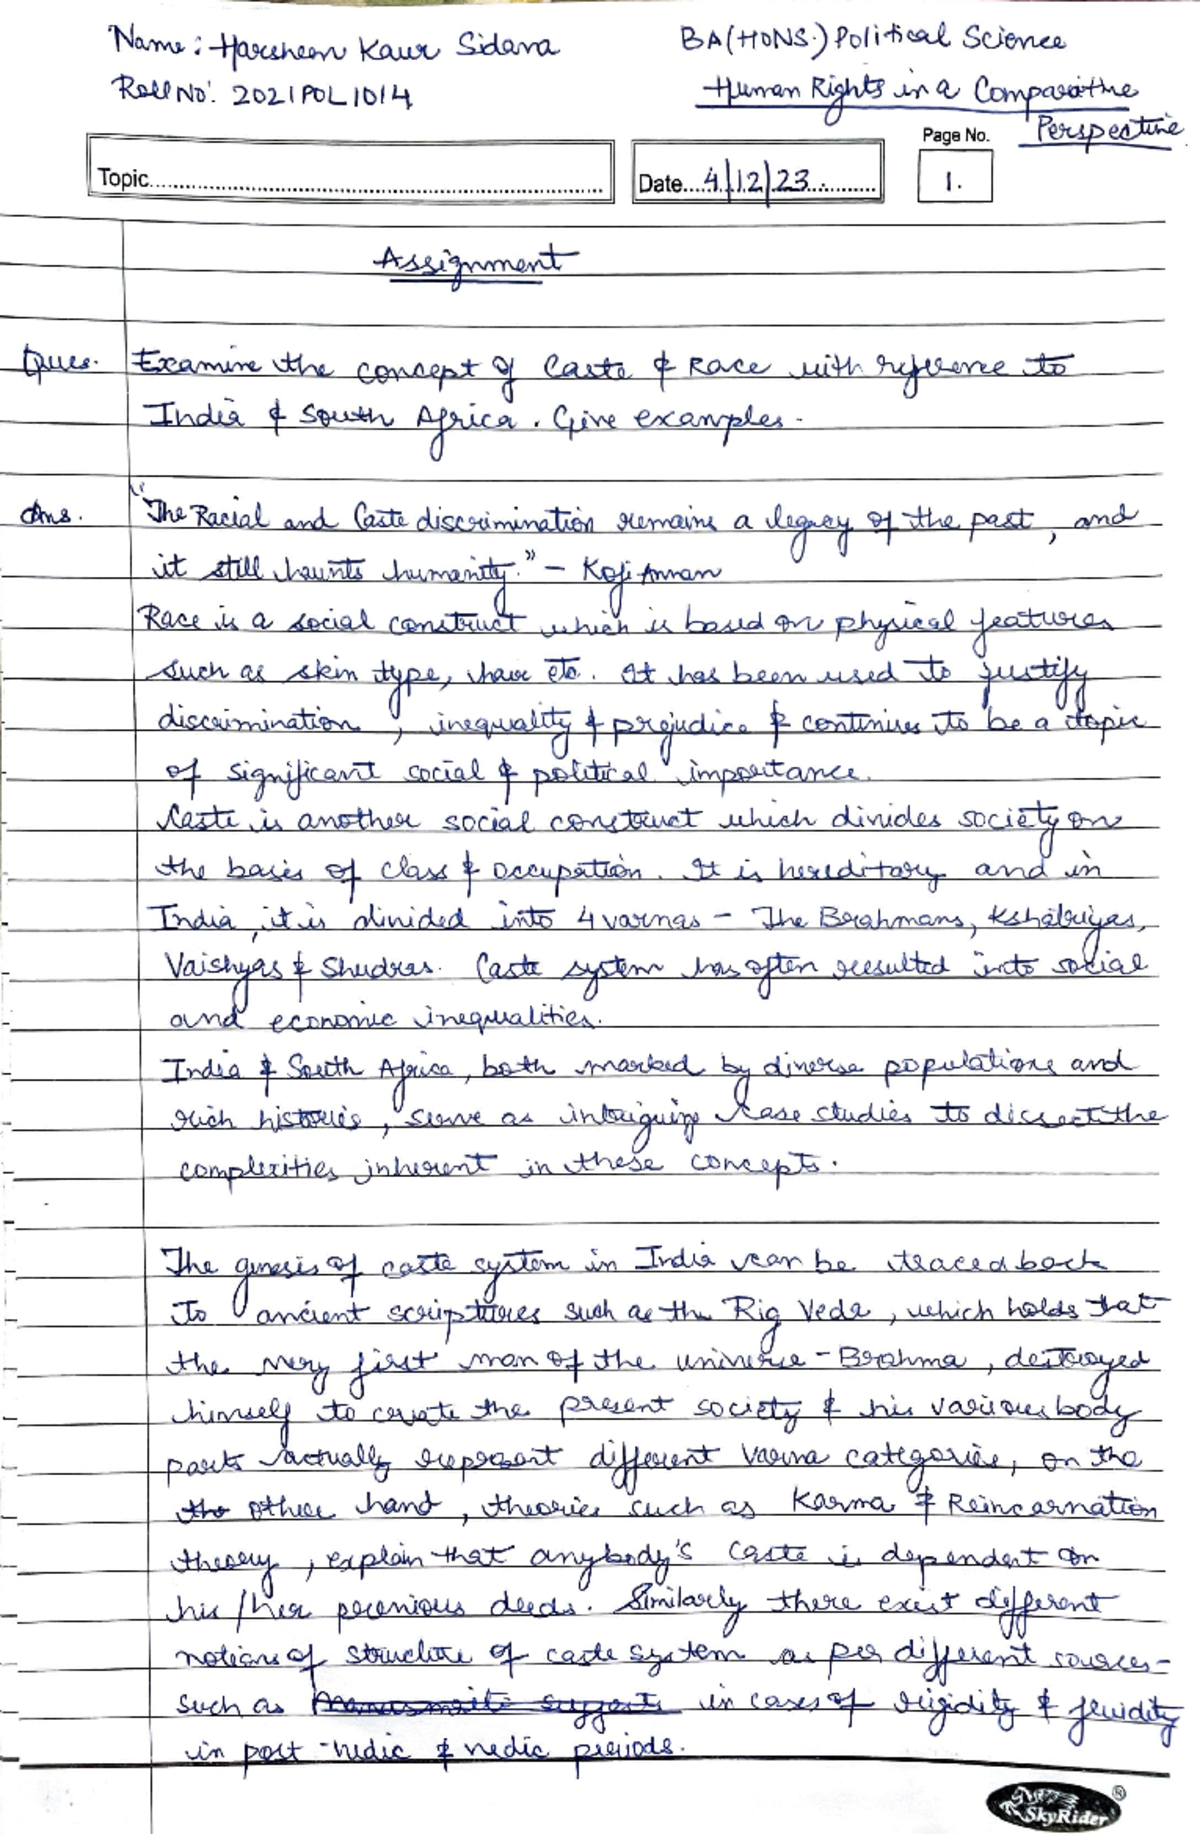 Name: Harsheen Kaur Sidana
BA(HONS.) Political Science
Roll No: 2021POL1014
Human Rights in a Comparative
Perspective
Topic
Date 4/12/23
Page No.
1.
Assignment
Ques. Examine the concept of Caste & Race with reference to
India & South Africa. Give examples.
Ans. "The Racial and Caste discrimination remains a legacy of the past, and
it still haunts humanity." - Kofi Annan
Race is a social construct which is based on physical features
such as skin type, hair etc. It has been used to justify
discrimination, inequality & prejudice & continues to be a topic
of significant social & political importance.
Caste is another social construct which divides society on
the basis of class & occupation. It is hereditary and in
India, it is divided into 4 varnas - The Brahmans, Kshatriyas,
Vaishyas & Shudras. Caste system has often resulted into social
and economic inequalities.
India & South Africa, both marked by diverse populations and
rich histories, serve as intriguing case studies to dissect the
complexities inherent in these concepts.
The genesis of caste system in India can be traced back
to ancient scriptures such as the Rig Veda, which holds that
the very first man of the universe - Brahma, destroyed
himself to create the present society & his various body
parts actually represent different Varna categories, on the
the other hand, theories such as Karma & Reincarnation
theory, explain that anybody's caste is dependent on
his/her previous deeds. Similarly there exist different
notions of structure of caste system as per different sources-
such as Manusmriti suggests in cases of rigidity & fluidity
in post-vedic & vedic periods.
SkyRider